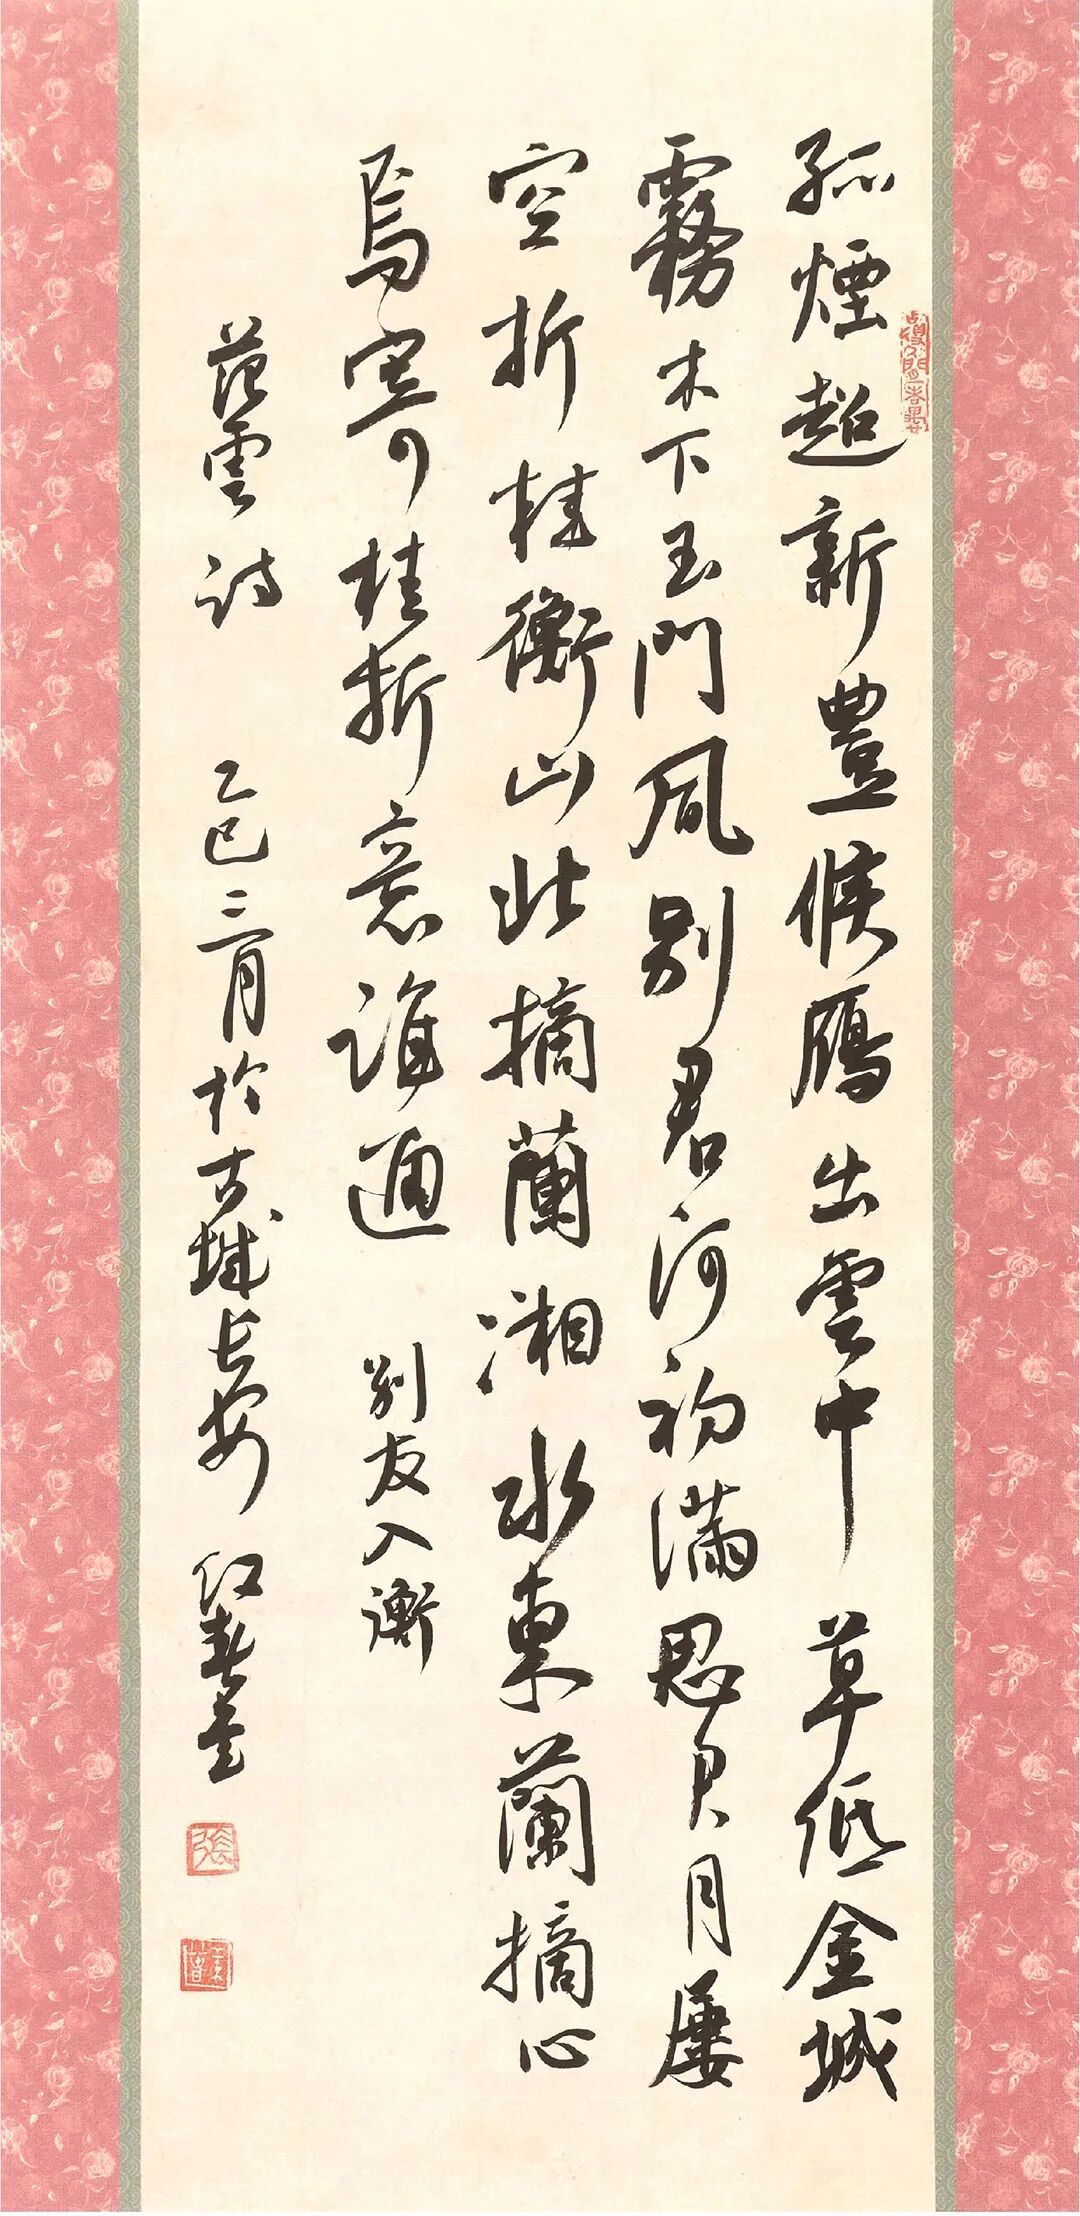 孤煙起新豐候鴈出雲中草低金城
霧木下玉門風別君河初滿思君月屢
空折桂衡山北摘蘭湘水東蘭摘心
焉寄桂折意誰通 別友入衡
范雲詩 乙巳三月於古城長安 紅春
張